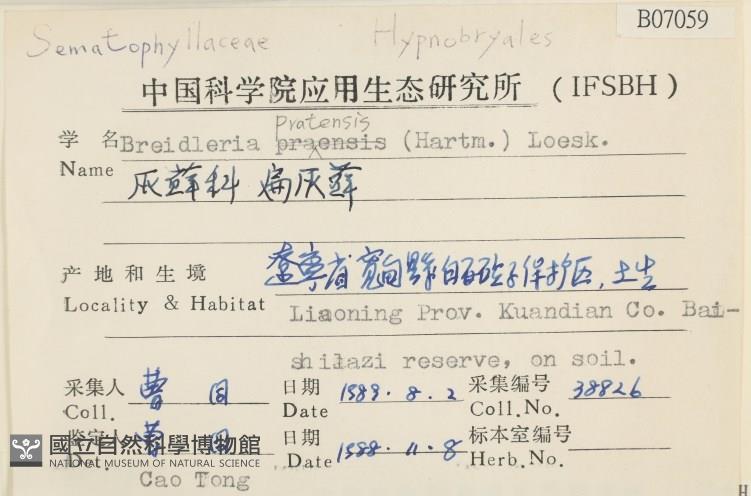 B07059
Sematophyllaceae Hypnobryales
中国科学院应用生态研究所 (IFSBH)
pratensis
学 名 Breidleria praensis (Hartm.) Loesk.
Name
灰藓科 扁灰藓
产地和生境 辽宁省宽甸县白石砬子保护区,土生
Locality & Habitat Liaoning Prov. Kuandian Co. Bai-
shilazi reserve, on soil.
采集人 曹同 日期 1989.8.2 采集编号 38826
Coll. Date Coll.No.
鉴定人 曹同 日期 1988.11.8 标本室编号
Det. Date Herb.No.
Cao Tong
國立自然科學博物館
NATIONAL MUSEUM OF NATURAL SCIENCE
H